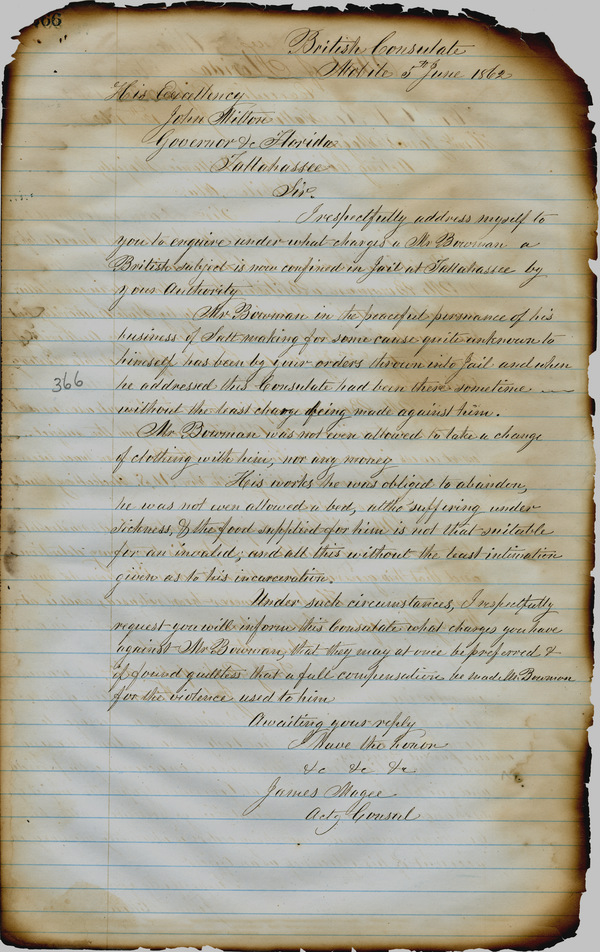 66
British Consulate
Mobile 5th June 1862
His Excellency
John Milton
Governor &c Florida
Tallahassee
Sir.
I respectfully address myself to
you to enquire under what charges a Mr Bowman a
British subject is now confined in Jail at Tallahassee by
your Authority
Mr Bowman in the peaceful persuance of his
business of Salt making for some cause quite unknown to
himself has been by your orders thrown into Jail and when
366
he addressed this Consulate had been there sometime
without the least charge being made against him.
Mr Bowman was not even allowed to take a change
of clothing with him, nor any money
His works he was obliged to abandon,
he was not even allowed a bed, altho suffering under
sickness, & the food supplied for him is not that suitable
for an invalid; and all this without the least intimation
given as to his incarceration.
Under such circumstances, I respectfully
request you will inform this Consulate what charges you have
against Mr Bowman, that they may at once be preferred &
if found guiltless that a full compensation be made Mr Bowman
for the violence used to him
Awaiting your reply
I Have the honor
&c &c &c
James Magee
Actg Consul